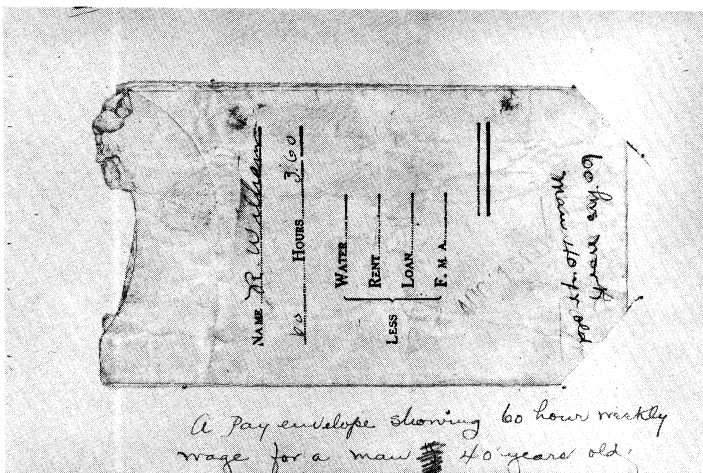 NAME R Williams
60 HOURS 3.60
LESS
WATER
RENT
LOAN
F. M. A.
60 hrs work
man 40 yr old
A pay envelope showing 60 hour weekly
wage for a man 40 years old.